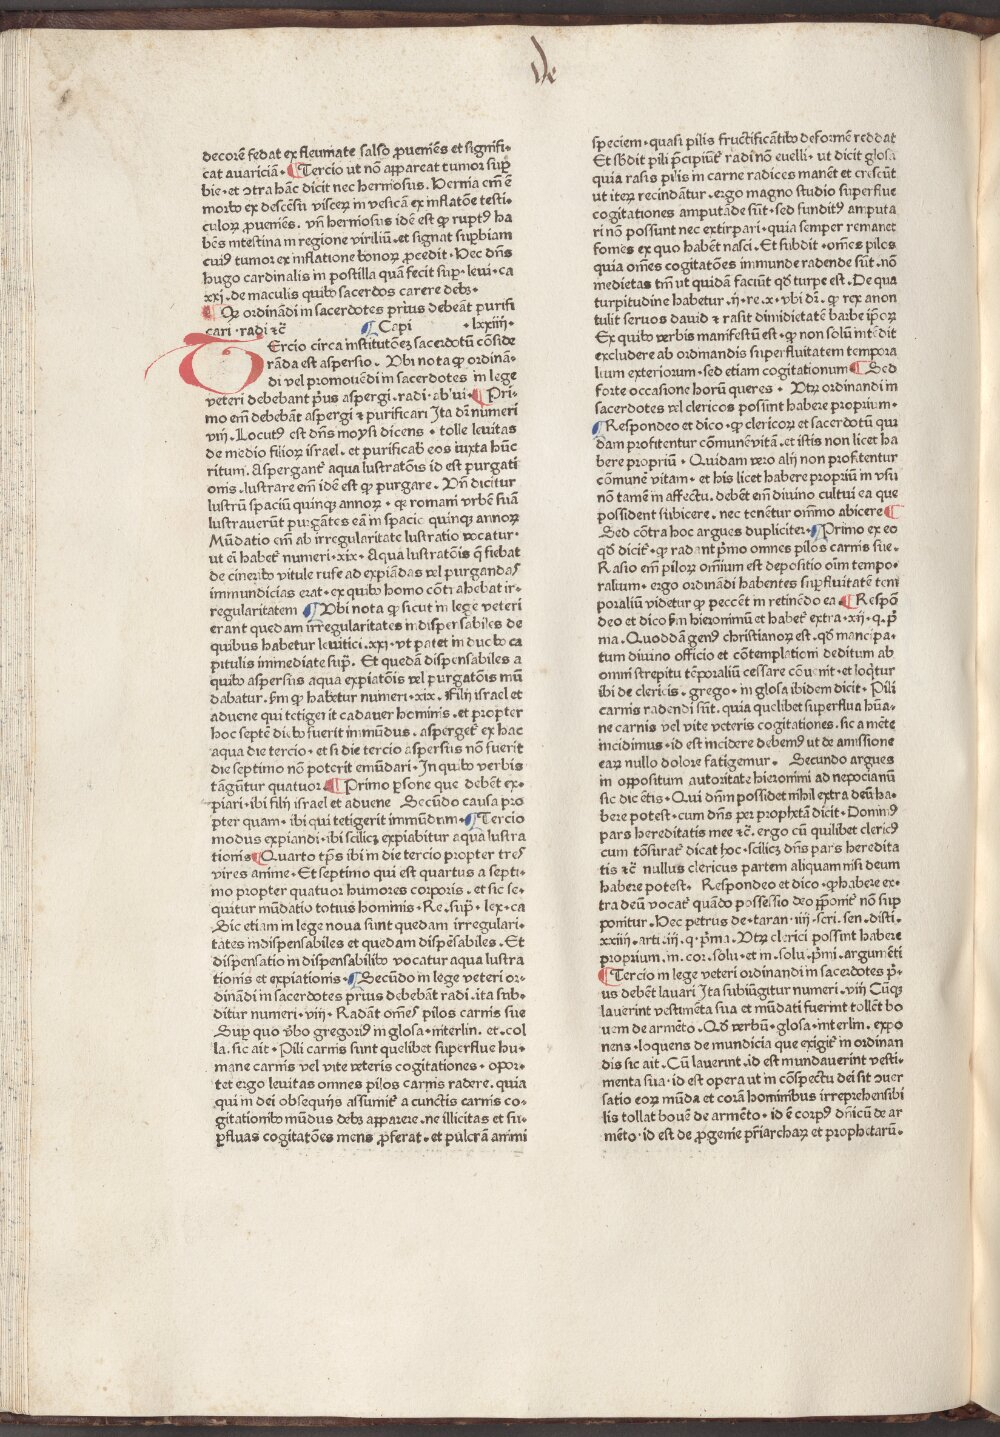 de
decorē fedat ex fleumate salso ꝓueniēs et signifi⸗
cat auariciā · Tercio ut nō appareat tumor suꝑ
bie · et ↄtra hāc dicit nec herniosus. Hernia em̄ ē
morbꝰ ex descēsu viscerꝝ in vesicā ex inflatōe testi⸗
culorꝝ ꝓueniēs. vn̄ herniosus idē est ꝙ ruptꝰ ha
bēs intestina in regione viriliū · et signat suꝑbiam
cuiꝰ tumor ex inflatione bonorꝝ ꝓcedit · Hec dn̄s
hugo cardinalis in postilla quā fecit suꝑ · leui · ca
xxi · de maculis quibꝰ sacerdos carere debꝫ ·
Qꝫ ordinādi in sacerdotes prius debeāt purifi
cari · radi ⁊c̄ Capi · lxxiiii ·
Tercio circa institutōeꝫ sacerdotū cōside
rāda est aspersio . Vbi nota ꝙ ordinā⸗
di vel promouēdi in sacerdotes in lege
veteri debebant pͥus aspergi . radi · ablui · Pri⸗
mo em̄ debebāt aspergi ⁊ purificari Ita dr̄ numeri
viij · Locutꝰ est dn̄s moysi dicens · tolle leuitas
de medio filiorꝝ israel · et purificab̄ eos iuxta hūc
ritum . Aspergant̄ aqua lustratōis id est purgati
onis . lustrare em̄ idē est ꝙ purgare . Vn̄ dicitur
lustrū spaciū quinqꝫ annorꝝ · qꝫ romani vrbē suā
lustrauerūt purgātes eā in spacio quinqꝫ annorꝝ
Mūdatio em̄ ab irregularitate lustratio vocatur ·
ut ei habet̄ numeri · xix · Aqua lustratōis q̄ fiebat
de cineribꝰ vitule rufe ad expiādas vel purgandas
immundicias erat · ex quibꝰ homo cōtrahebat ir⸗
regularitatem Vbi nota ꝙ sicut in lege veteri
erant quedam irregularitates indispensabiles de
quibus habetur leuitici · xxi · vt patet in duobꝰ ca
pitulis immediate suꝑ . Et quedā dispensabiles a
quibꝰ aspersus aqua expiatōis vel purgatōis mū
dabatur . sm̄ ꝙ habetur numeri · xix · Filij israel et
aduene qui tetigerit cadauer hominis · et propter
hoc septē diebꝰ fuerit immūdus · asperget̄ ex hac
aqua die tercio · et si die tercio aspersus nō fuerit
die septimo nō poterit emūdari · In quibꝰ verbis
tāgūtur quatuor · Primo ꝑsone que debēt ex⸗
piari · ibi filij israel et aduene Secūdo causa pro
pter quam · ibi qui tetigerit immūdum · Tercio
modus expiandi · ibi scilicꝫ expiabitur aqua lustra
tionis Quarto tp̄s ibi in die tercio propter tres
vires anime · Et septimo qui est quartus a septi⸗
mo propter quatuor humores corporis . et sic se⸗
quitur mūdatio totius hominis · Re . suꝑ · lex · ca
Sic etiam in lege noua sunt quedam irregulari⸗
tates indispensabiles et quedam dispēsabiles . Et
dispensatio in dispensabilibꝰ vocatur aqua lustra
tionis et expiationis · Secūdo in lege veteri or⸗
dināndi in sacerdotes prius debebāt radi . ita sub⸗
ditur numeri · viij · Radāt omēs pilos carnis sue
Suꝑ quo v̄bo gregoriꝰ in glosa · interlin . et . col
la . sic ait · Pili carnis sunt quelibet superflue hu⸗
mane carnis vel vite veteris cogitationes · opor⸗
tet ergo leuitas omnes pilos carnis radere . quia
qui in dei obsequijs assumit̄ a cunctis carnis co⸗
gitationibꝰ mūdus debꝫ apparere . ne illicitas et su⸗
ꝑfluas cogitatōes mens ꝓferat · et pulcrā animi
speciem · quasi pilis fructificātibꝰ deformē reddat
Et sb̄dit pili p̄cipiūt̄ radi nō euelli · ut dicit glosa
quia rasis pilis in carne radices manēt et crescūt
ut iterꝫ recindātur . ergo magno studio superflue
cogitationes amputāde sūt · sed funditꝰ amputa
ri nō possunt nec extirpari · quia semper remanet
fomes ex quo habēt nasci . Et subdit · omēs pilos
quia omēs cogitatōes immunde radende sūt . nō
medietas tm̄ ut quidā faciūt qd̄ turpe est . De qua
turpitudine habetur . ij · re . x · vbi dr̄ . ꝙ rex anon
tulit seruos dauid ⁊ rasit dimidietatē barbe ip̄orꝝ
Ex quibꝰ verbis manifestū est · ꝙ non solū intēdit
excludere ab ordinandis superfluitatem tempora
lium exteriorum · sed etiam cogitationum Sed
forte occasione horū queres · Vtrꝫ ordinandi in
sacerdotes vel clericos possint habere proprium ·
Respondeo et dico · ꝙ clericorꝝ et sacerdotū qui
dam profitentur cōmunē vitā . et istis non licet ha
bere propriū · Quidam vero alij non profitentur
cōmunē vitam · et his licet habere propriū in vsu
nō tamē in affectu . debēt em̄ diuino cultui ea que
possident subicere . nec tenētur omīno abicere
Sed cōtra hoc argues dupliciter · Primo ex eo
qd̄ dicit̄ · ꝙ radant pͥmo omnes pilos carnis sue ·
Rasio em̄ pilorꝝ omīum est depositio oīm tempo⸗
ralium · ergo ordinādi habentes suꝑfluitatē tem
poraliū videtur ꝙ peccēt in retinēdo ea Respō
deo et dico sm̄ hieronimū et habet̄ extra · xij · q . pͥ
ma . Quoddā genꝰ christianorꝝ est . qd̄ mancipa⸗
tum diuino officio et cōtemplationi deditum ab
omni strepitu tēporaliū cessare cōuenit · et loq̄tur
ibi de clericis . grego · in glosa ibidem dicit · Pili
carnis radendi sūt . quia quelibet superflua hūa⸗
ne carnis vel vite veteris cogitationes . sic a mēte
incidimus · id est incidere debemꝰ ut de amissione
earꝝ nullo dolore fatigemur . Secundo argues
in oppositum autoritate hieronimi ad nepocianū
sic dicētis · Qui dn̄m possidet nihil extra deū ha⸗
bere potest · cum dn̄s per prophetā dicit · Dominꝰ
pars hereditatis mee ⁊c̄ . ergo cū quilibet clericꝰ
cum tōsurat̄ dicat hoc · scilicꝫ dn̄s pars heredita
tis ⁊c̄ nullus clericus partem aliquam nisi deum
habere potest . Respondeo et dico · ꝙ habere ex⸗
tra deū vocat̄ quādo possessio deo p̄ponit̄ nō sup
ponitur . Hec petrus de · taran · iiij · scri . sen . disti .
xxiiij · arti . iij . q · pͥma . Vtrꝫ clerici possint habere
proprium . in . cor . solu · et in . solu . pͥmi . argumēti
Tercio in lege veteri ordinandi in sacerdotes pͥ⸗
us debēt lauari Ita subiūgitur numeri . viij Cūqꝫ
lauerint vestimēta sua et mūdati fuerint tollēt bo
uem de armēto . Qd̄ verbū · glosa · interlin . expo
nens · loquens de mundicia que exigit̄ in ordinan
dis sic ait . Cū lauerint . id est mundauerint vesti⸗
menta sua · id est opera ut in cōspectu dei sit ↄuer
satio eorꝝ mūda et corā hominibus irreprehensibi
lis tollat bouē de armēto · id ē corpꝰ dn̄icū de ar
mēto · id est de ꝓgenie pr̄iarcharꝝ et prophetarū ·